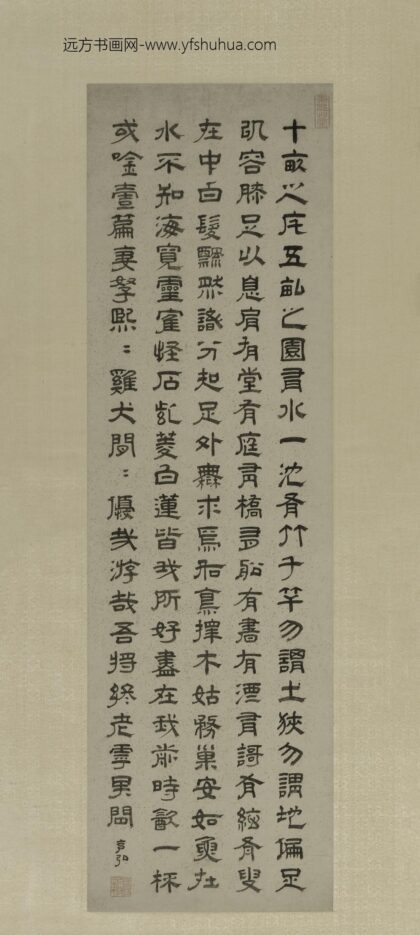 远方书画网-www.yfshuhua.com
十畝之宅五畝之園有水一池有竹千竿勿謂土狹勿謂地偏足
以容膝足以息肩有堂有庭有橋有船有書有酒有謌有絃有叟
在中白髮飄然識分知足外無求焉如鳥擇木姑務巢安如在
水不知海寬靈隺怪石紫菱白蓮皆我所好盡在我前時飲一杯
或唫壹篇妻孥熙〻雞犬閒〻優哉游哉吾將終老乎其間